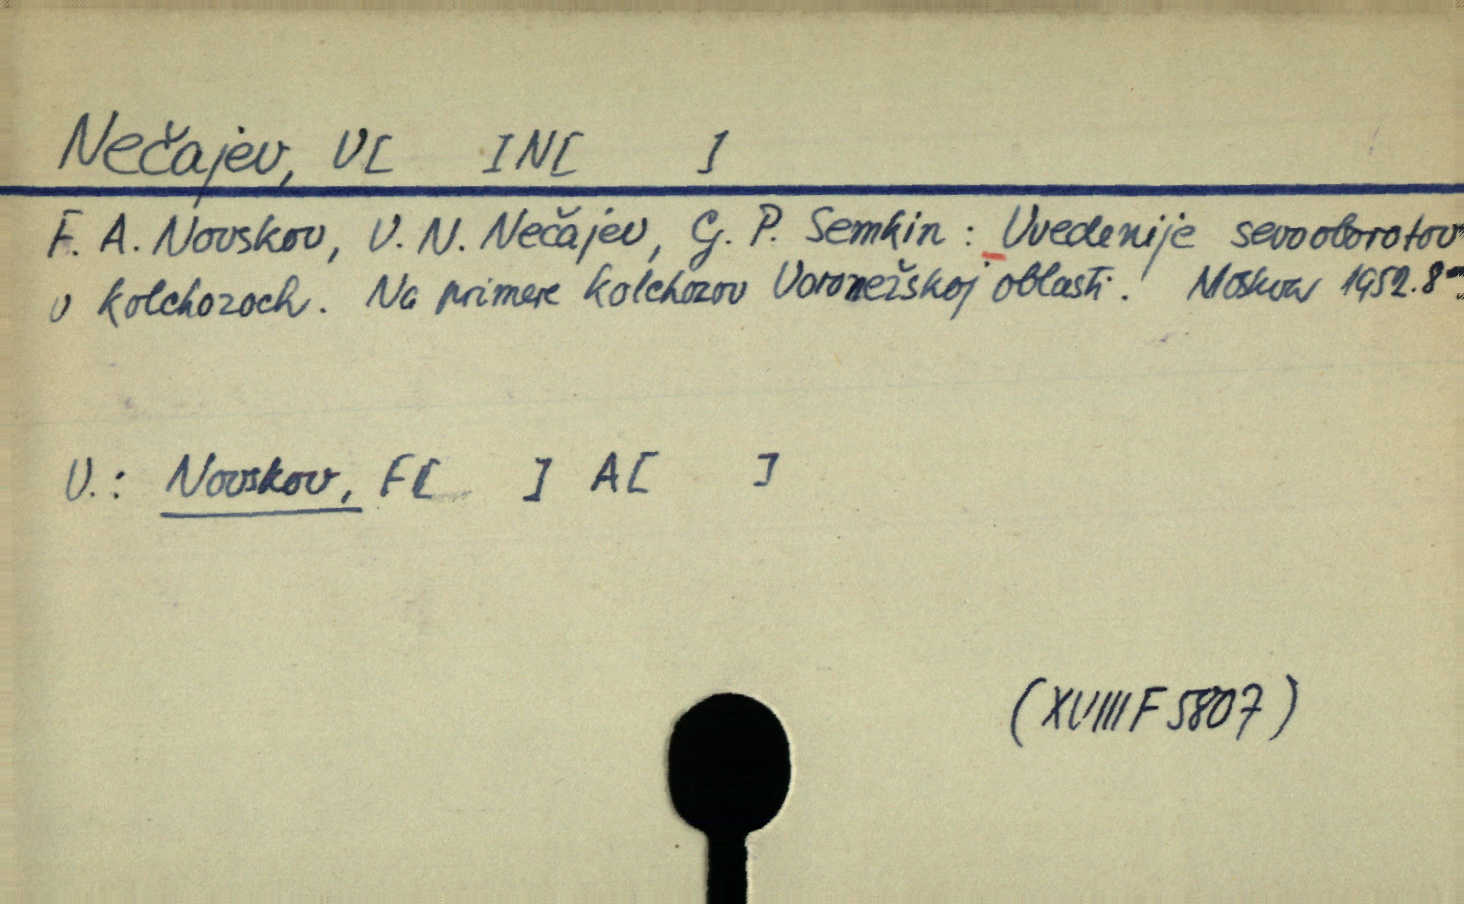 Nečajev, V[ ] N[ ]
F. A. Novskov, V. N. Nečajev, G. P. Semkin: Vvedenije sevooborotov
v kolchozoch. Na primere kolchozov Voronežskoj oblasti. Moskva 1952. 8°
V.: Novskov, F[ ] A[ ]
(XVIII F 5807)